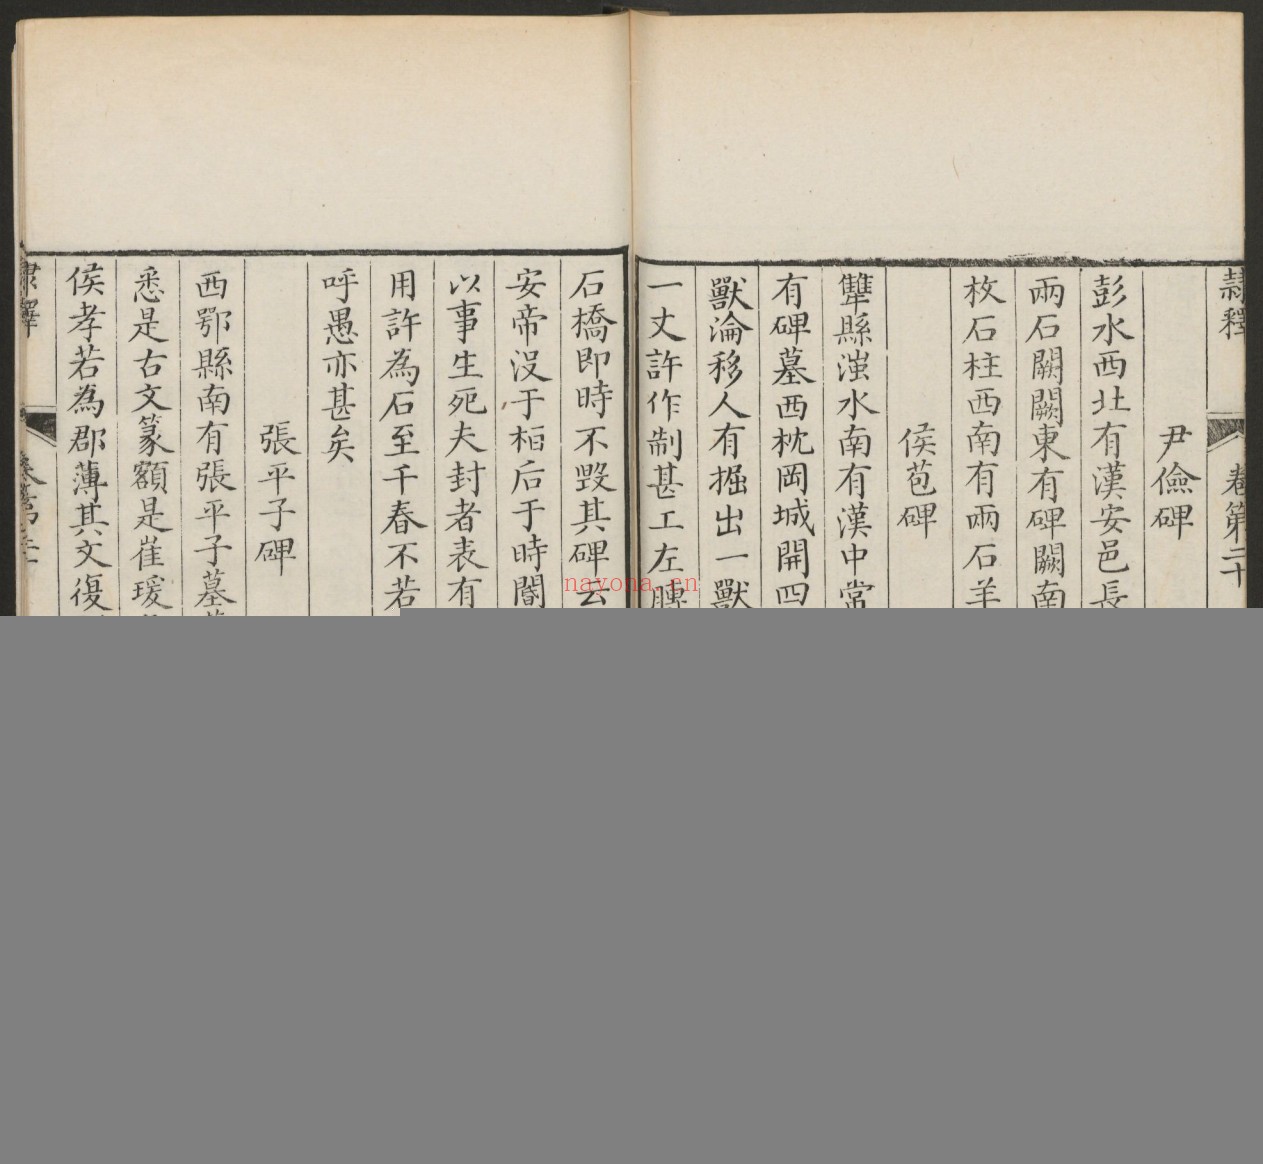 隸釋 卷第二十
尹儉碑
彭水西北有漢安邑長
兩石闕闕東有碑闕南
枚石柱西南有兩石羊
侯苞碑
犨縣滍水南有漢中常
有碑墓西枕岡城開四
獸淪移人有掘出一獸
一丈許作制甚工左膊
石橋即時不毀其碑云
安帝沒于柏后于時閽
以事生死夫封者表有
用許為石至千春不若
呼愚亦甚矣
張平子碑
西鄂縣南有張平子墓
悉是古文篆額是崔瑗
侯孝若為郡薄其文復
隸釋 卷第二十
nayona.cn